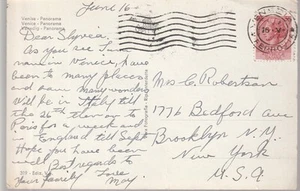 June 16
Venise - Panorama
Venice - Panorama
Venedig - Panorama
Dear Slyvia,
As you see I am
now in Venice, have
been to many places
and seen many wonders
Will be in Italy till
the 26th then on to
Paris for a week and
England till Sept.
Hope you have been
well. Best regards to
your family Love
May.
Mrs C. Robertson
1776 Bedford Ave
Brooklyn N.Y.
New York
U.S.A